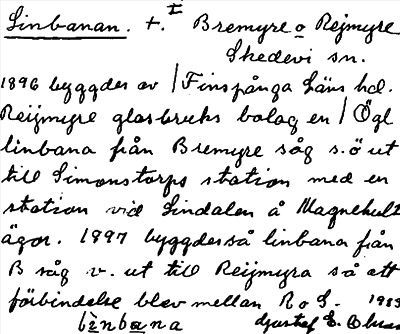 Linbanan. t. I Bremyre o Rejmyre
Skedevi sn.
1896 byggdes av / Finspånga läns hd.
Reijmyre glasbruks bolag en / Ögl
linbana från Bremyre såg s.ö ut
till Simonstorps station med en
station vid Lindalen å Magnehult
ägor. 1997 byggdes så linbana från
B såg v. ut till Reijmyra så att
förbindelse blev mellan R o S. 1983
lìnbana Gustaf E. Olsson